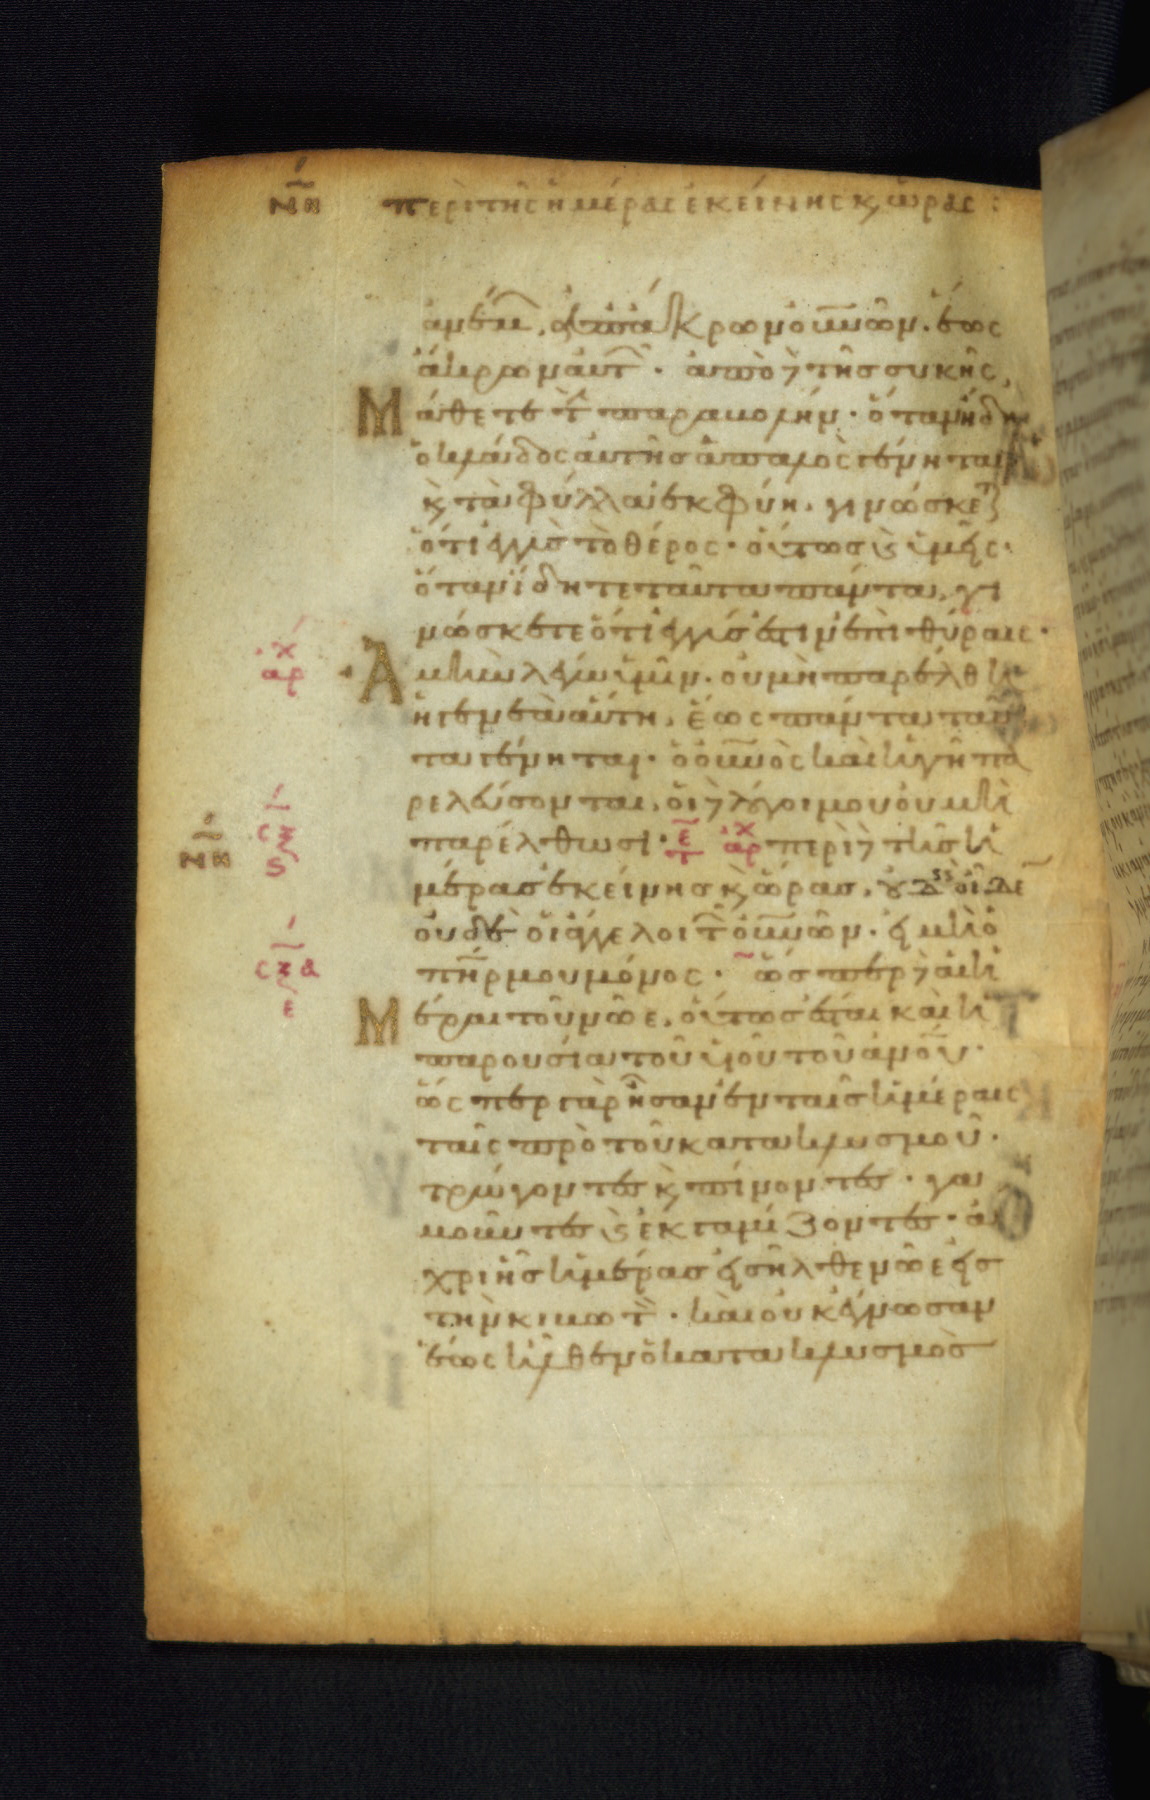 νη περὶ τῆς ἡμέρας ἐκείνης κ ὥρας :
ἀνέμ, ἀπ ἄκρων οὐνων. ἕως
ἄκρων αυτ. ἀπὸ δ τῆς συκῆς,
Μάθετε τ παραβολήν. ὅταν ἤδη
ὁ κλάδος αὐτῆς ἁπαλὸς γένηται
κ τὰ φύλλα ἐκφύη. γινώσκε
ὅτι ἐγγὺς τὸ θέρος. οὕτως κ ὑμεῖς.
ὅταν ἴδητε ταῦτα πάντα, γι
νώσκετε ὅτι ἐγγύς ἐστιν ἐπὶ θύραις.
αρχ Ἀμὴν λέγω ὑμῖν. οὐ μὴ παρέλθη
ἡ γενεὰ αὕτη, ἕως πάντα ταῦ
τα γένηται. ὁ οὐνος καὶ ἡ γῆ πα
σξ ρελεύσονται, οἱ δ λόγοι μου οὐ μὴ
νη ς παρέλθωσι. αρχ περὶ δ τῆς ἡ
μέρας ἐκείνης κ ὥρας, οὐδεὶς οἶδε
οὐδὲ οἱ ἄγγελοι τ οὐνων. εἰ μὴ ὁ
σξα πηρ μου μόνος. ὥσπερ δ αἱ ἡ
ε Μέραι τοῦ νῶε, οὕτως ἔσται καὶ ἡ
παρουσία τοῦ υἱοῦ τοῦ ἀνου.
ὥσπερ γὰρ ἦσαν ἐν ταῖς ἡμέραις
ταῖς πρὸ τοῦ κατακλυσμοῦ.
τρώγοντες κ πίνοντες. γα
μοῦντες κ ἐκγαμίζοντες. ἄ
χρι ἧς ἡμέρας εἰσῆλθε νῶε εἰς
τὴν κιβωτ. καὶ οὐκ ἔγνωσαν
ἕως ἦλθεν ὁ κατακλυσμὸς